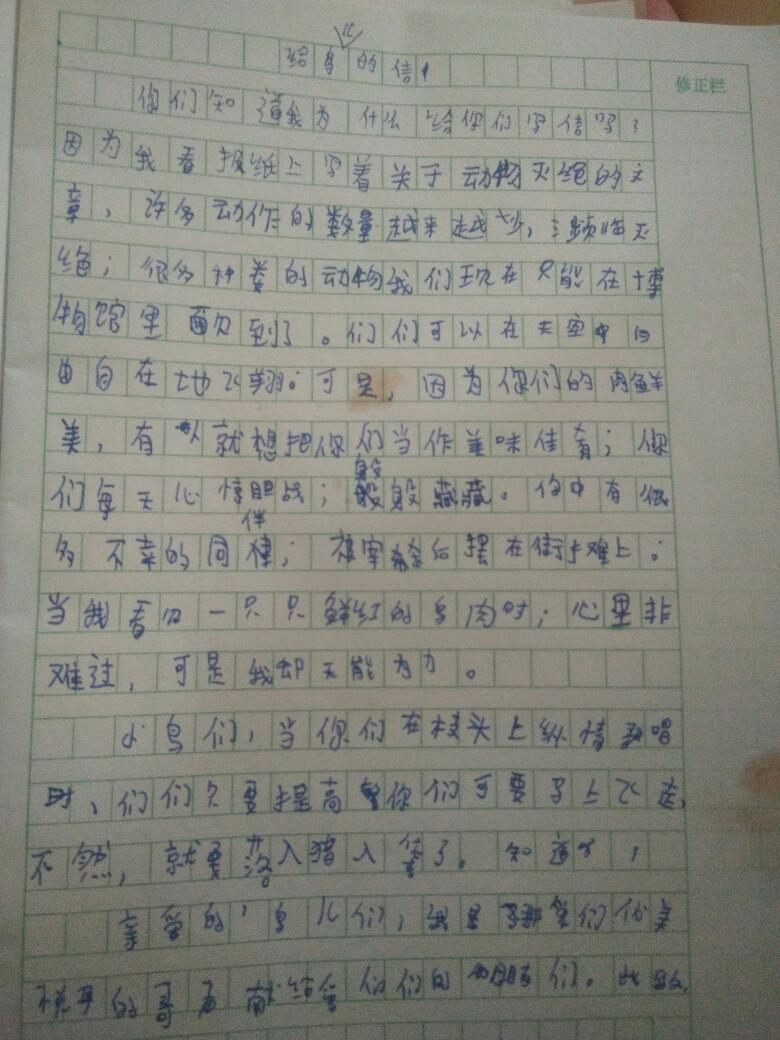 儿
给鸟的信
修正栏
你们知道我为什么给你们写信吗?
因为我看报纸上写着关于动物灭绝的文
章,许多动作的数量越来越少,频临灭
绝;很多种类的动物我们现在只能在博
物馆里看到了。们们可以在天空中自
由自在地飞翔。可是,因为你们的肉鲜
美,有人就想把你们当作美味佳肴;你
们每天心惊胆战;躲躲藏藏。你中有很
伴
多不幸的同;被宰杀后摆在街上难上。
当我看见一只只鲜红的鸟肉时;心里非
难过,可是我却无能为力。
小鸟们,当你们在枝头上纵情歌唱
时、们们只要提高警你们可要马上飞走,
不然,就要落入猎人笼了。知道吗?
亲爱的鸟儿们,我是你们优美
悦耳的歌声献给们们的朋们。此致